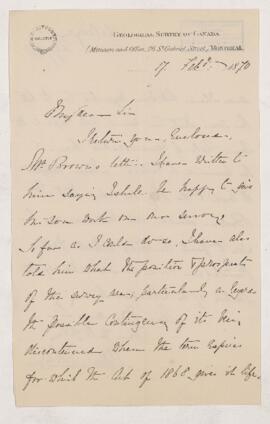 GEOLOGICAL SURVEY OF CANADA
(Museum and Office, 76 St Gabriel Street,) MONTREAL
17 Feby 1870
My dear Sir
I return you, enclosed,
Mr Brown's letter. I have written to
him saying I shall be happy to give
his son work on our survey
so far as I can do so, I have also
told him what the position & prospects
of the survey, particularly as regards
the possible contingency of its being
discontinued when the term expires
for which the Act of 1868 gives it life,